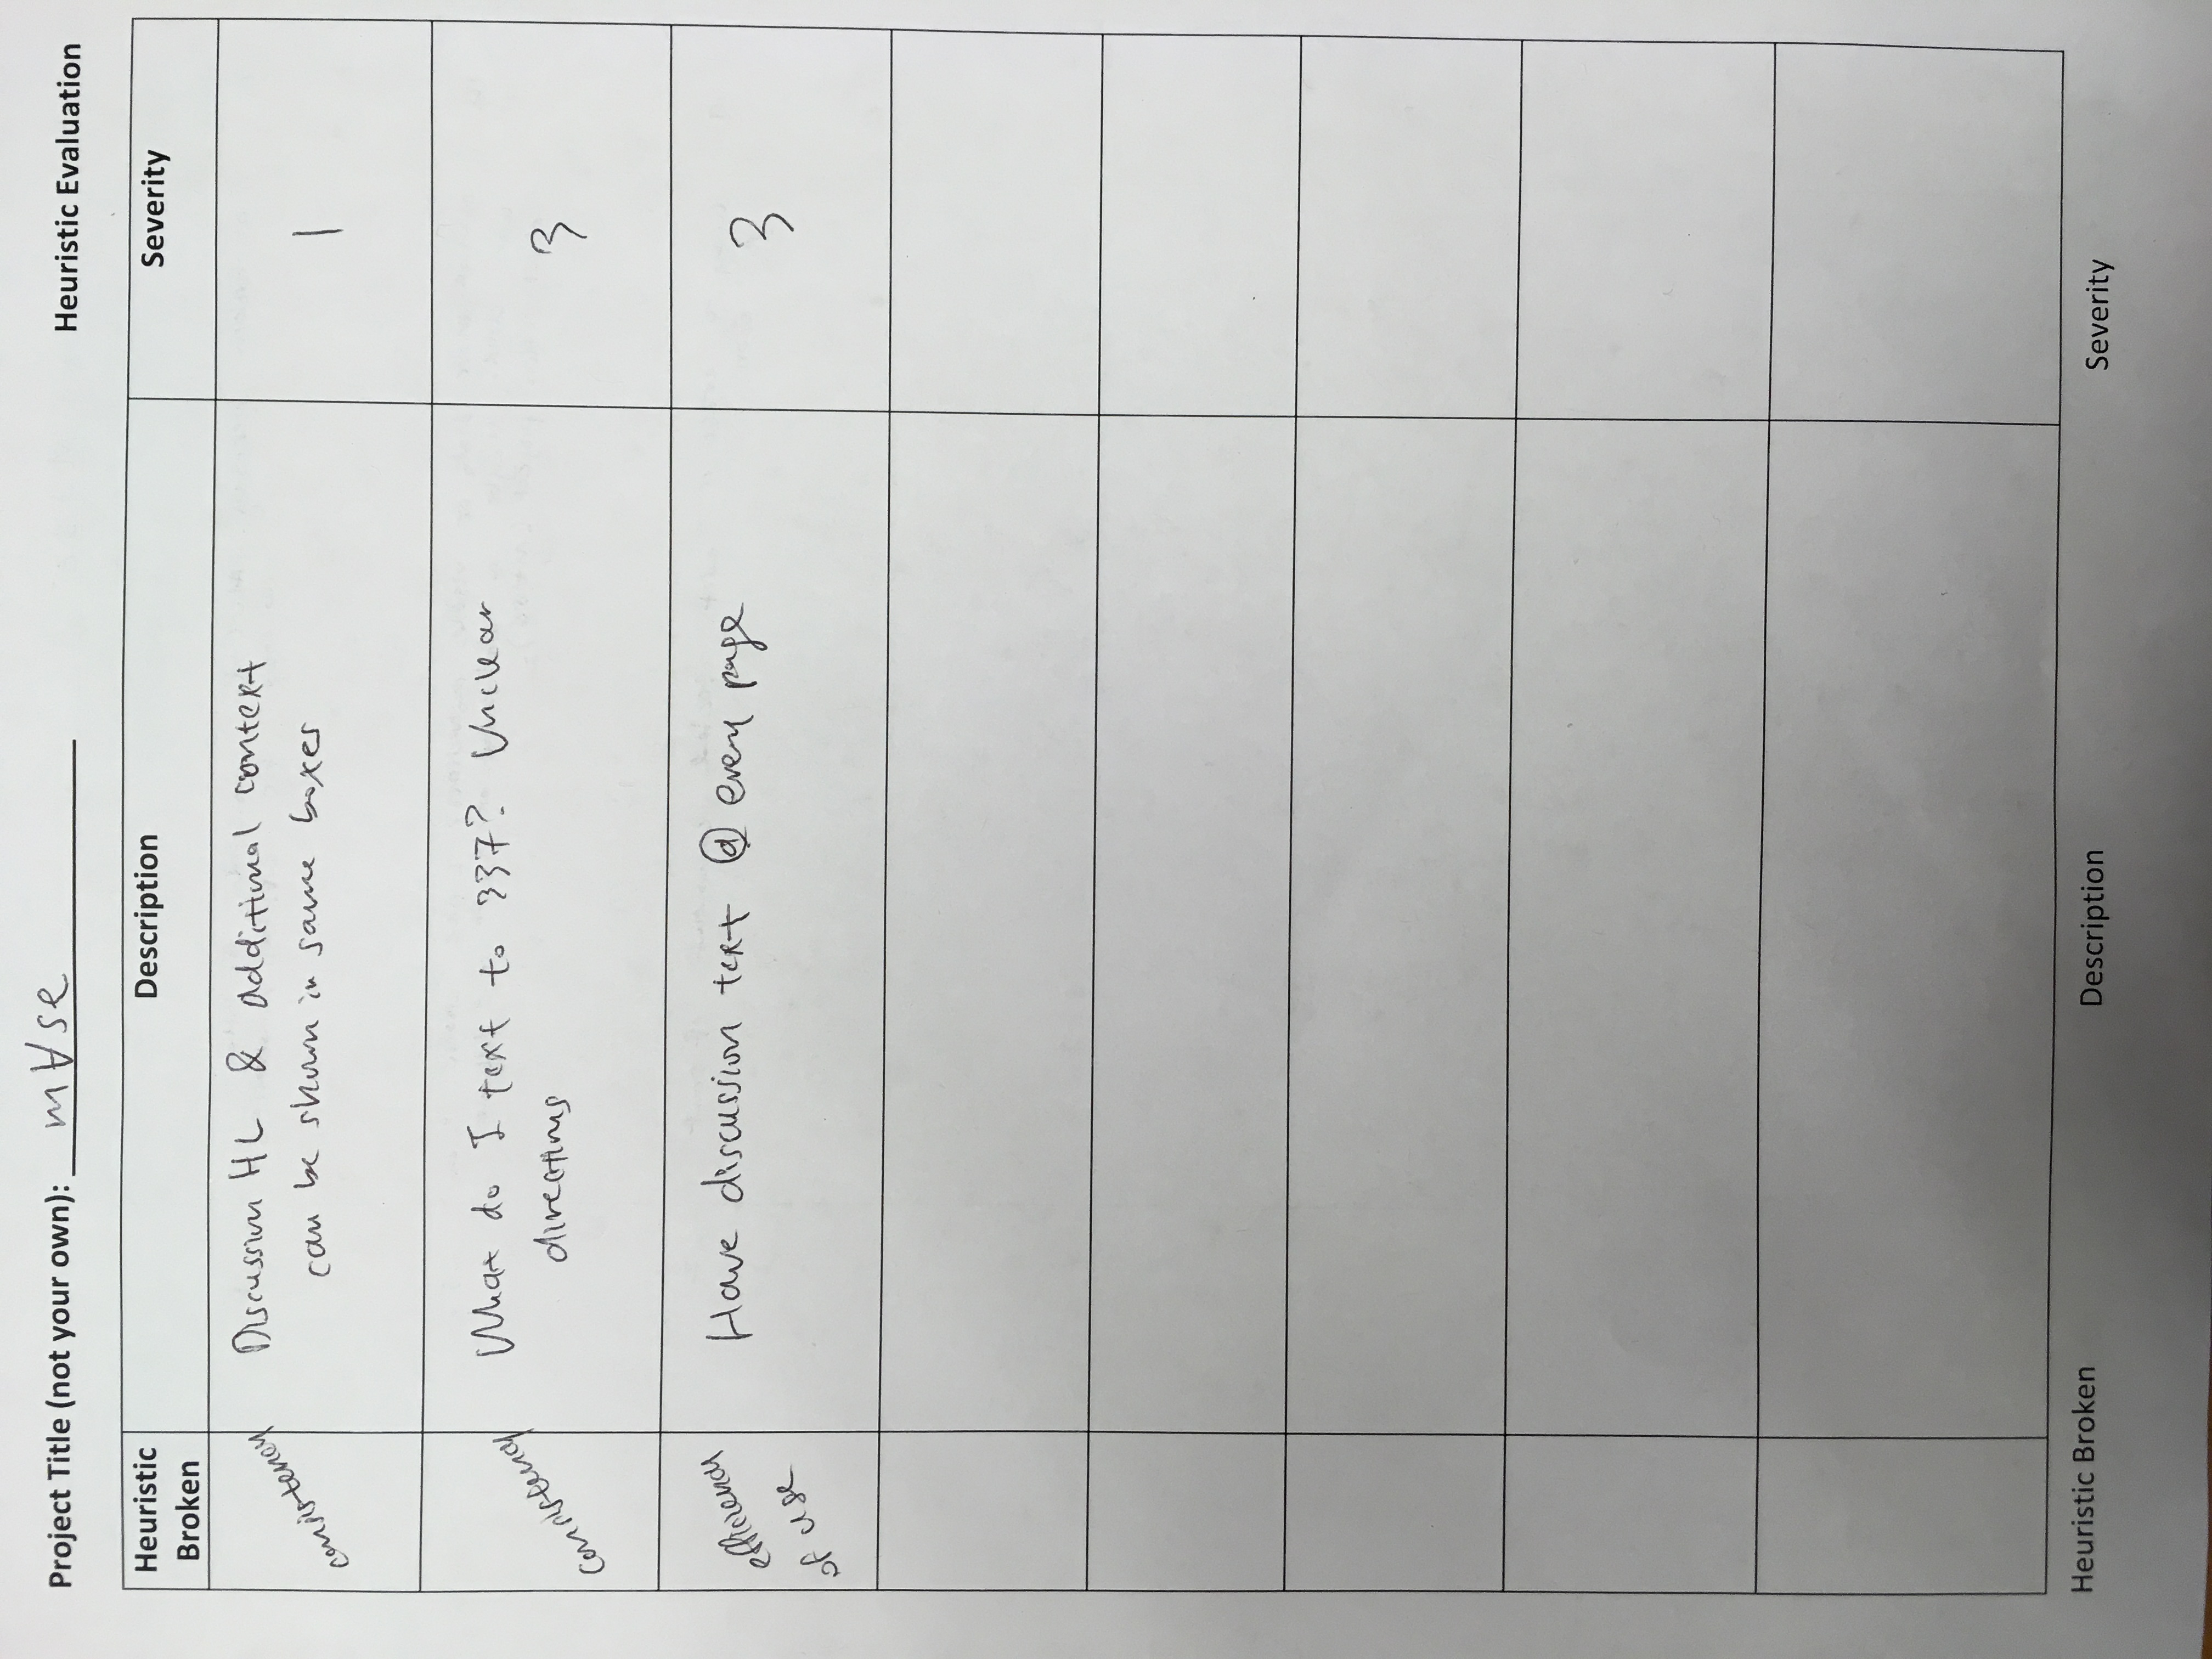 Project Title (not your own): m∀se
Heuristic Evaluation
Heuristic Broken
Description
Severity
consistency
Discussion HL & additional context
can be shown in same boxes
1
consistency
What do I text to 337? Unclear
directions
3
efficiency
of use
Have discussion text @ every page
3
Heuristic Broken
Description
Severity